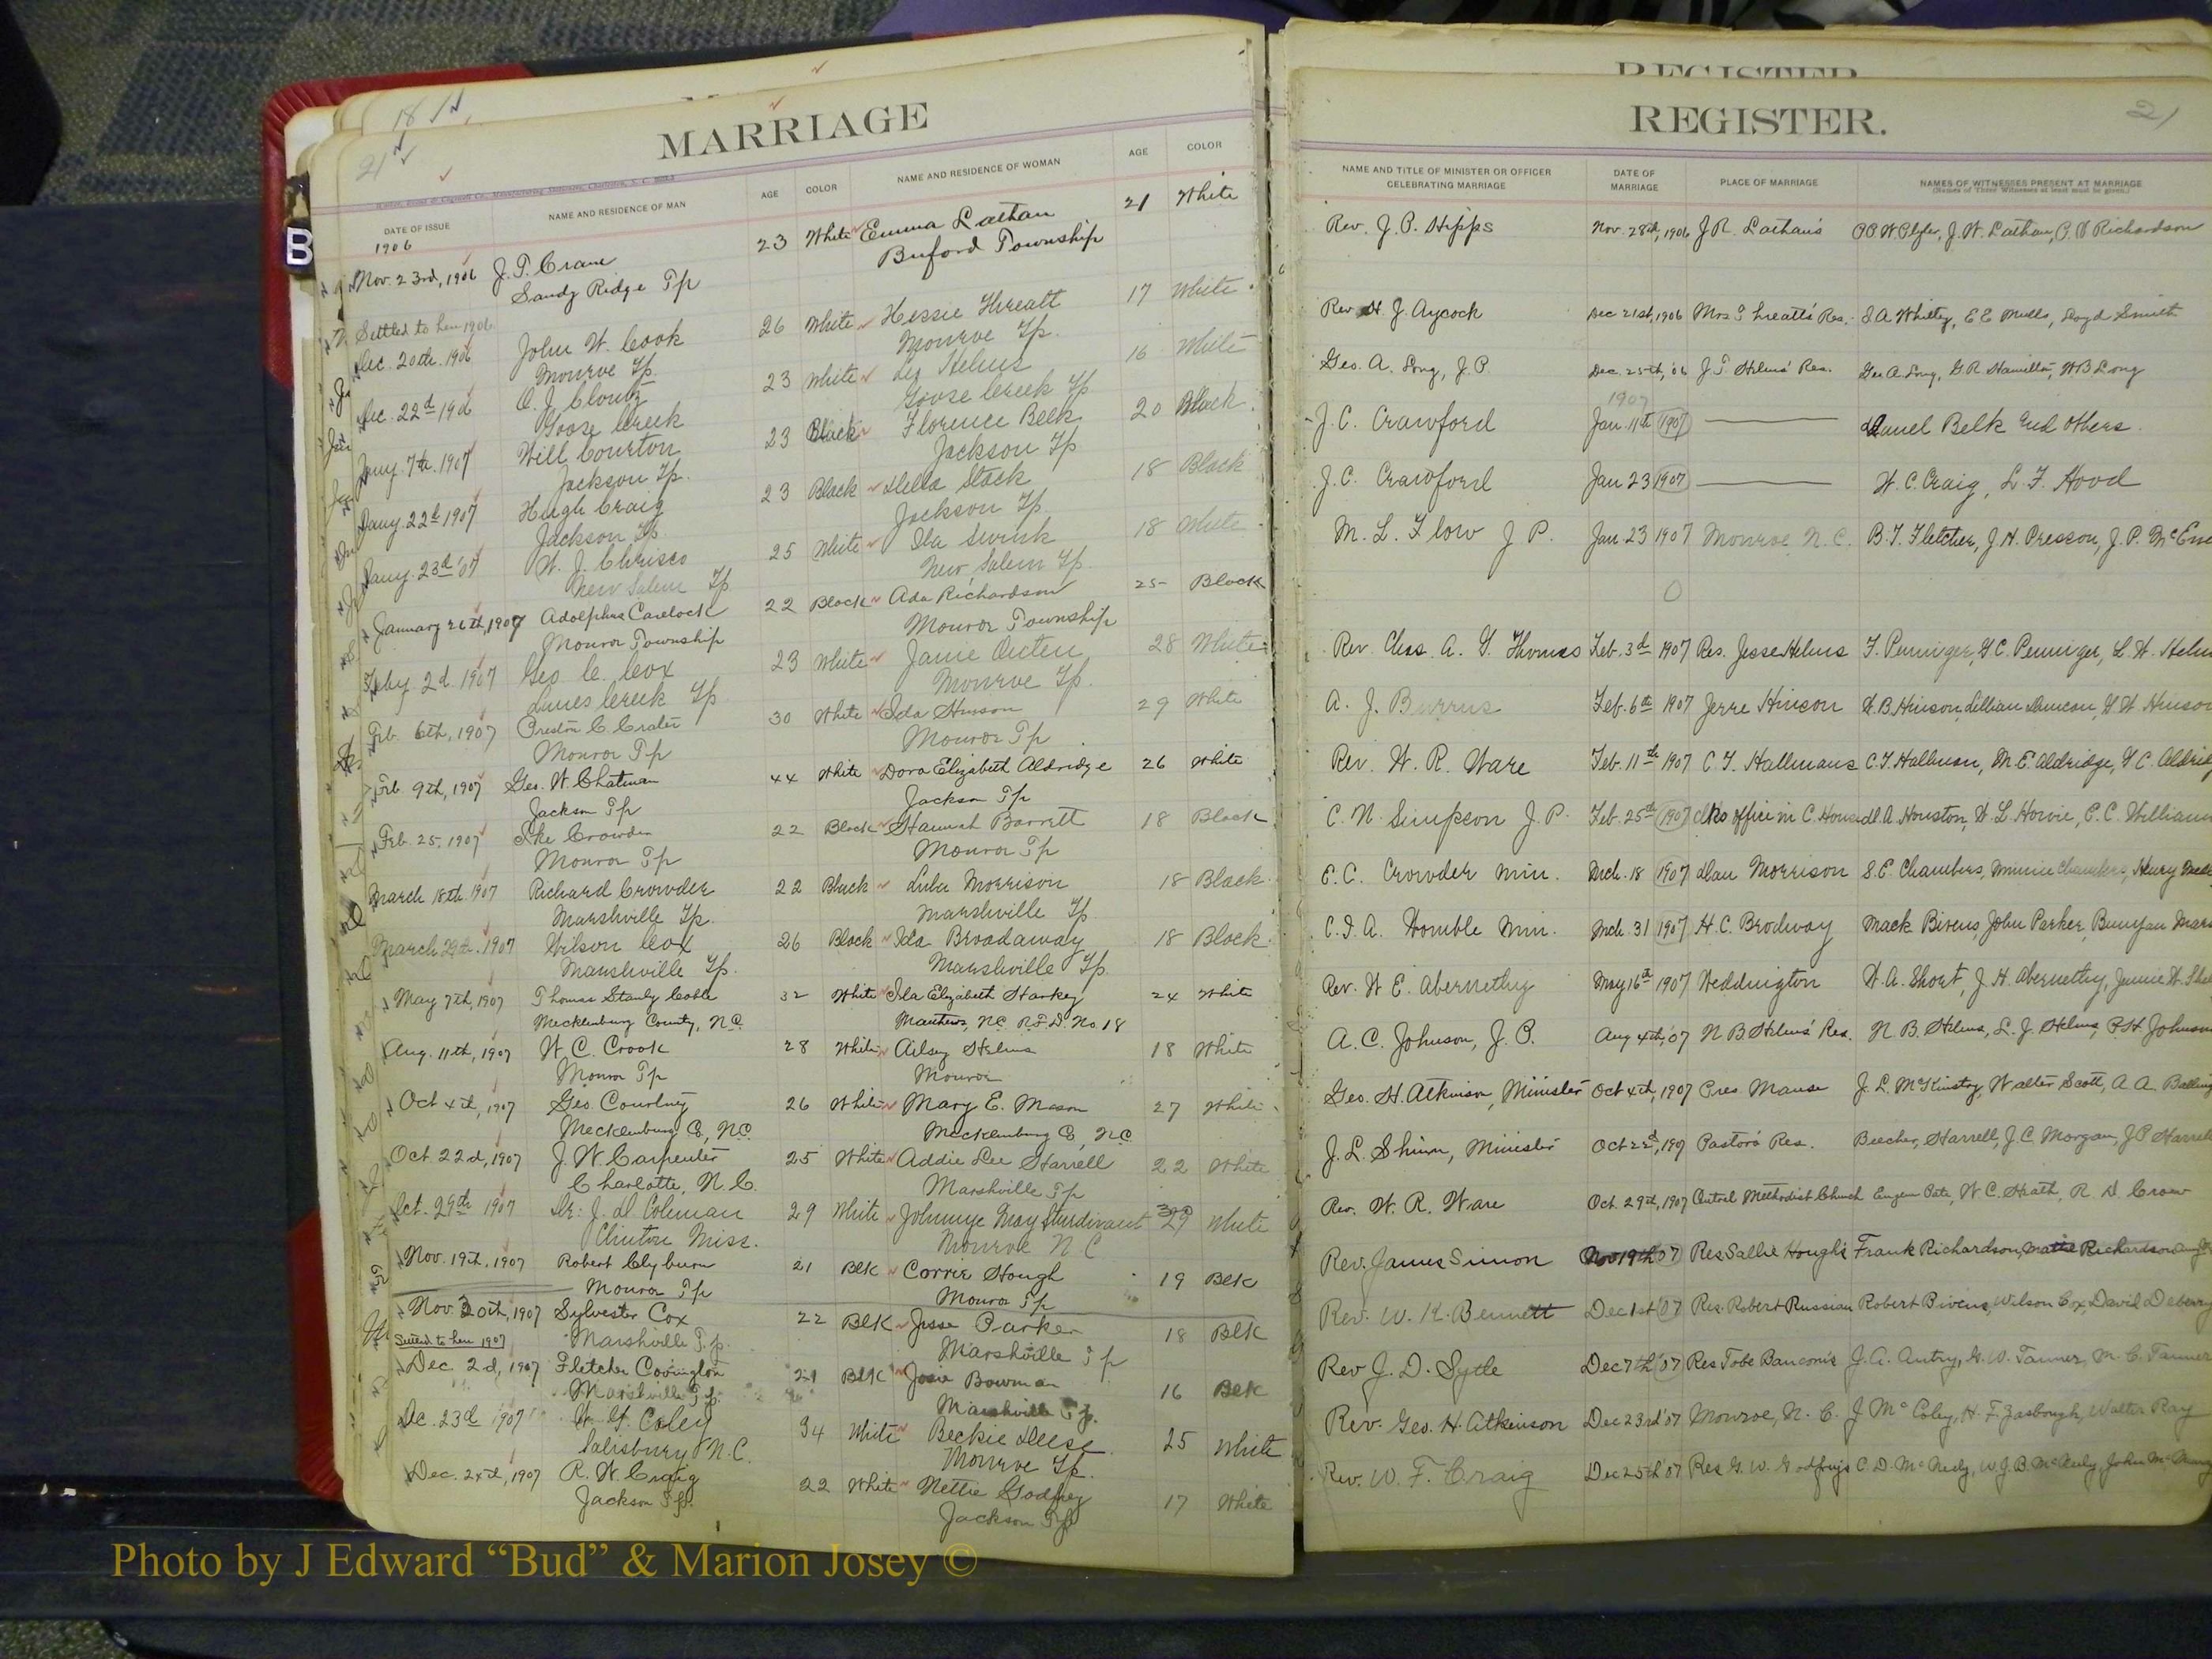 18
MARRIAGE
21
DATE OF ISSUE NAME AND RESIDENCE OF MAN AGE COLOR NAME AND RESIDENCE OF WOMAN AGE COLOR
1906
Nov. 23rd, 1906 J. P. Crane 23 White Emma Lathan 21 White
Sandy Ridge Tp Buford Township
Settled to here 1906
Dec. 20th. 1906 John W. Cook 26 White Hessie Threatt 17 White
Monroe Tp. Monroe Tp.
Dec. 22d 1906 23 White Helms 16 White
Goose Creek Goose Creek Tp
Jany. 7th. 1907 Will Courton 23 Black Florence Belk 20 Black
Jackson Tp. Jackson Tp
Jany. 22d 1907 Hugh Craig 23 Black Stack 18 Black
Jackson Tp Jackson Tp.
Jany. 23d '07 W. J. Chrisco 25 White Ila 18 White
New Salem Tp New Salem Tp.
January 26th, 1907 Adolphus Carelock 22 Black Ada Richardson 25 Black
Monroe Township Monroe Township
Feby. 2d. 1907 Geo. C. Cox 23 White Janie Outen 28 White
Lanes Creek Tp Monroe Tp.
Feb. 6th, 1907 Preston C. Crater 30 White Ida Hinson 29 White
Monroe Tp Monroe Tp
Feb. 9th, 1907 Geo. W. Chatman 44 White Dora Elizabeth Aldridge 26 White
Jackson Tp Jackson Tp
Feb. 25, 1907 Ike Crowder 22 Black Hannah Barrett 18 Black
Monroe Tp Monroe Tp
March 18th. 1907 Richard Crowder 22 Black Lula Morrison 18 Black
Marshville Tp. Marshville Tp.
March 29th. 1907 Wilson Cox 26 Black Ida Broadaway 18 Black
Marshville Tp. Marshville Tp.
May 7th, 1907 Thomas Stanly Coble 32 White Ila Elizabeth Starkey 24 White
Mecklenburg County, N.C. Matthews, N.C. R.F.D. No. 18
Aug. 11th, 1907 W. C. Crook 28 White Ailsey Helms 18 White
Monroe Tp Monroe
Oct 4th, 1907 Geo. Courtney 26 White Mary E. Mason 27 White
Mecklenburg Co, N.C. Mecklenburg Co, N.C
Oct. 22d, 1907 J. W. Carpenter 25 White Addie Lee Harrell 22 White
Charlotte, N.C. Marshville Tp
Oct. 29th 1907 Dr. J. D. Coleman 29 White Johnnye May Sturdivant 29 White
Clinton Miss. Monroe N C
Nov. 19th, 1907 Robert Clyburn 21 Blk Corrie Hough 19 Blk
Monroe Tp Monroe Tp
Nov 30th, 1907 Sylvester Cox 22 Blk Jesse Parker 18 Blk
Settled to here 1907 Marshville Tp. Marshville Tp
Dec. 2d, 1907 Fletcher Covington 21 Blk Josie Bowman 16 Blk
Marshville Tp. Marshville Tp.
Dec. 23d 1907 W. G. Coley 34 White Beckie Deese 25 White
Salisbury N.C. Monroe Tp.
Dec. 24th, 1907 R. W. Craig 22 White Nettie Godfrey 17 White
Jackson Tp. Jackson Tp
REGISTER
REGISTER.
21
NAME AND TITLE OF MINISTER OR OFFICER CELEBRATING MARRIAGE DATE OF MARRIAGE PLACE OF MARRIAGE NAMES OF WITNESSES PRESENT AT MARRIAGE
(Names of Three Witnesses at least must be given.)
Rev. J. P. Hipps Nov. 28th, 1906 J R. Lathan's J. W. Lathan, Richardson
Rev. H. J. Aycock Dec 21st, 1906 Mrs Threatt's Res. S A Whitley, E E Mills, Loyd Smith
Geo. A. Long, J. P. Dec. 25th, '06 J. T Helms' Res. Geo A Long, G R Hamilton, W B Long
1907
J. C. Crawford Jan. 11th 1907 Belk and Others.
J. C. Crawford Jan 23 1907 W. C. Craig, L. F. Hood
M. L. Flow J P. Jan. 23 1907 Monroe, N. C. B. T. Fletcher, J. H. Presson, J. P. McEwe
Rev. Chas. A. G. Thomas Feb. 3d 1907 Res. Jesse Helms F. Penninger, G C. Penninger, L. H. Helms
A. J. Burrus Feb. 6th 1907 Jerre Hinson W. B. Hinson, Lillian Duncan, W W Hinson
Rev. W. R. Ware Feb. 11th 1907 C. T. Hallmans C. T. Hallman, M. E. Aldridge, G C. Aldrid
C. N. Simpson J. P. Feb. 25th 1907 clks office in C. House A. Houston, W. L. Howie, C. C. William
E. C. Crowder Min. Mch. 18 1907 Dan Morrison S. E. Chambers, Minnie Chambers, Henry
C. I. A. Womble Min. Mch. 31 1907 H. C. Brodway Mack Bivens, John Parker, Bunyan Mars
Rev. W E. Abernethy May 16th 1907 Weddington W. A. Short, J. H. Abernethy, Jennie W.
A. C. Johnson, J. P. Aug 4th, '07 N B Helms' Res. N B. Helms, L. J. Helms, P. H Johnson
Geo. H. Atkinson, Minister Oct 4th, 1907 Pres. Manse J. L. McKinstry, Walter Scott, A A.
J. L. Shinn, Minister Oct 22d, 1907 Pastors Res. Beecher, Harrell, J. C. Morgan, J P Harrell
Rev. W. R. Ware Oct. 29th, 1907 Central Methodist Church Eugene Pate, W. C. Heath, R. D. Crow
Rev. James Simon Nov 19th 07 Res Sallie Hough's Frank Richardson, Mattie Richardson
Rev. W. K. Bennett Dec 1st 07 Res. Robert Russian Robert Bivens, Wilson Cox, David Deberry
Rev J. D. Sytle Dec 7th '07 Res Tobe Bancom's J. A. Autry, G. W. Tanner, M. C. Tanner
Rev. Geo. H. Atkinson Dec 23rd '07 Monroe, N. C. J Mc Coley, H. F. Walter Ray
Rev. W. F. Craig Dec 25th '07 Res G. W. Godfreys C. D. McNeely, W. J. B. McNeely, John
Photo by J Edward “Bud” & Marion Josey ©
B